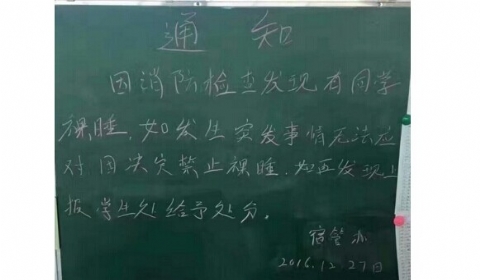 通 知
因消防检查发现有同学
裸睡.如发生突发事情无法应
对因决定禁止裸睡.如再发现上
报学生处给予处分。
宿管办
2016.12.27日